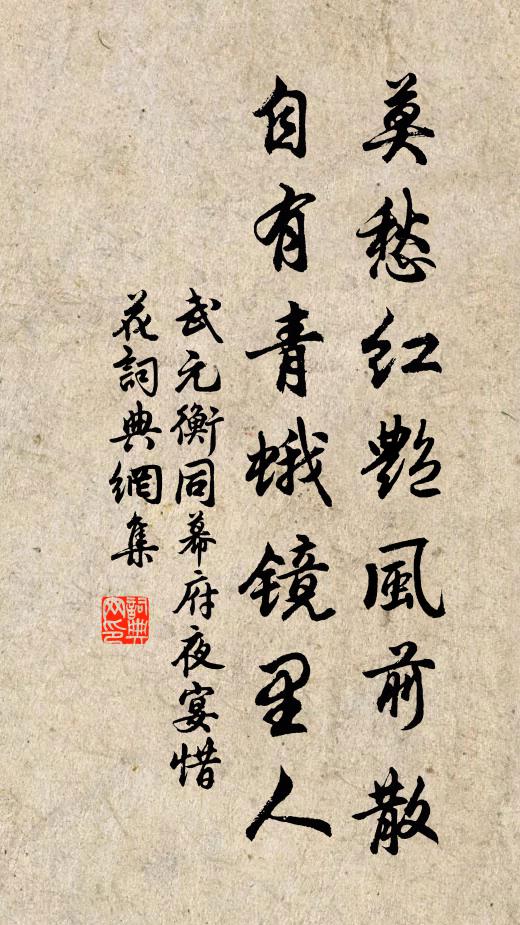 莫愁红艷風前散
自有青蛾镜里人
武元衡同幕府夜宴惜
花詞典網集
詞典网印